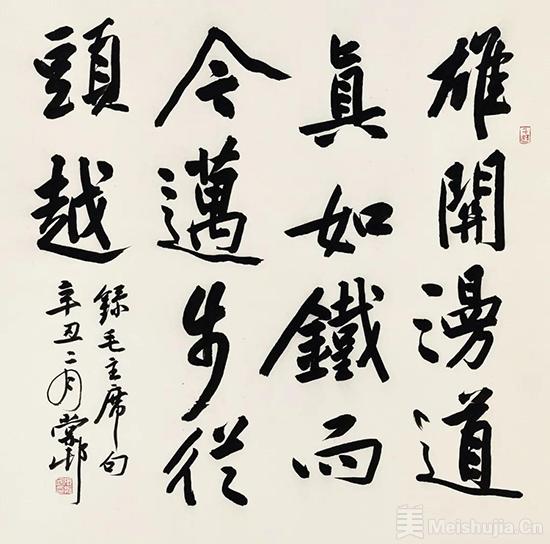 雄關漫道
眞如鐵而
今邁步從
頭越
錄毛主席句
辛丑二月
美 Meishujia.Cn